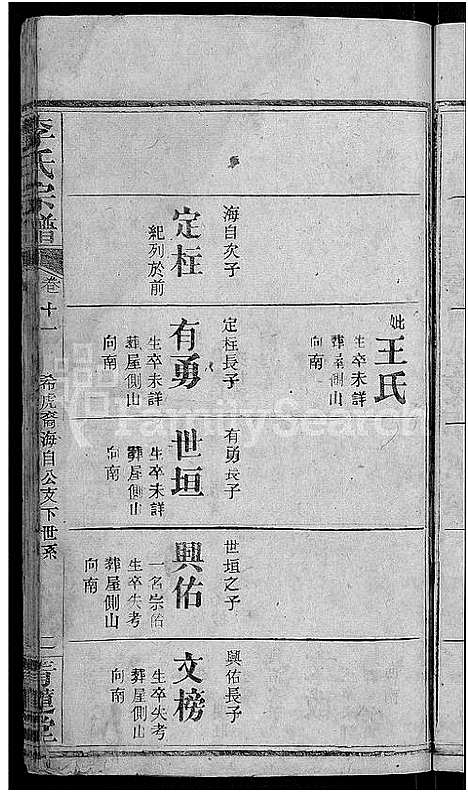 李氏宗譜
卷十一
希虎裔海自公支下世系
二
青蓮堂
海自次子
定柱
紀列於前
妣王氏
生卒未詳
葬屋側山
向南
定柱長子
有勇
生卒未詳
葬屋側山
向南
有勇長子
世垣
生卒未詳
葬屋側山
向南
世垣之子
興佑
一名宗佑
生卒失考
葬屋側山
向南
興佑長子
文榜
生卒失考
葬屋側山
向南
FamilySearch